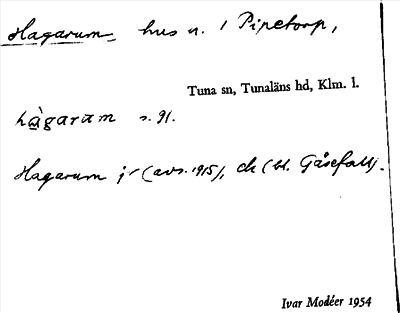 Hagarum, hus n. 1 Pipetorp,
Tuna sn, Tunaläns hd, Klm. l.
hàgarum s. 91.
Hagarum jr (avs. 1915), ek (bl. Gåsefall).
Ivar Modéer 1954